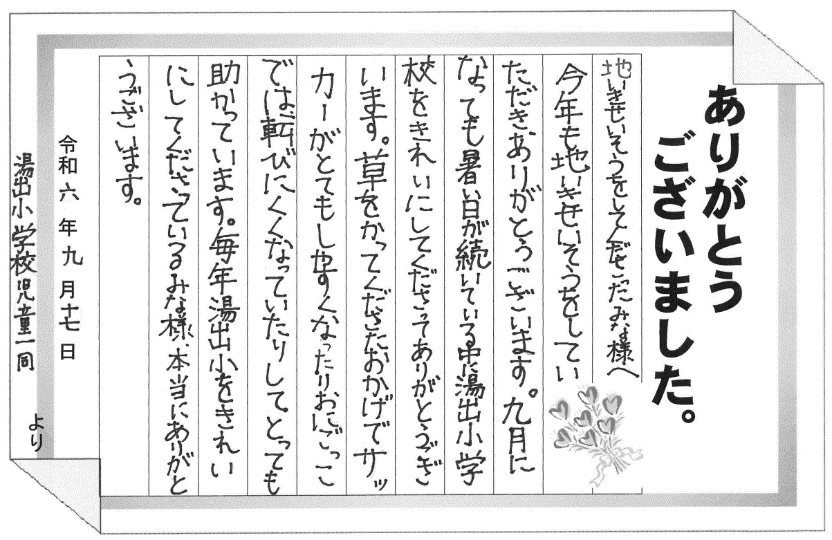 ありがとう
ございました。
地いきせいそうをしてくださったみな様へ
今年も地いきせいそうをしてい
ただきありがとうございます。九月に
なっても暑い日が続いている中湯出小学
校をきれいにしてくださってありがとうござ
います。草をかってくださたおかげでサッ
カーがとてもしやすくなったりおにごっこ
では転びにくくなっていたりして、とっても
助かっています。毎年湯出小をきれい
にしてくださっているみな様、本当にありがと
うございます。
令和六年九月十七日
湯出小学校児童一同
より